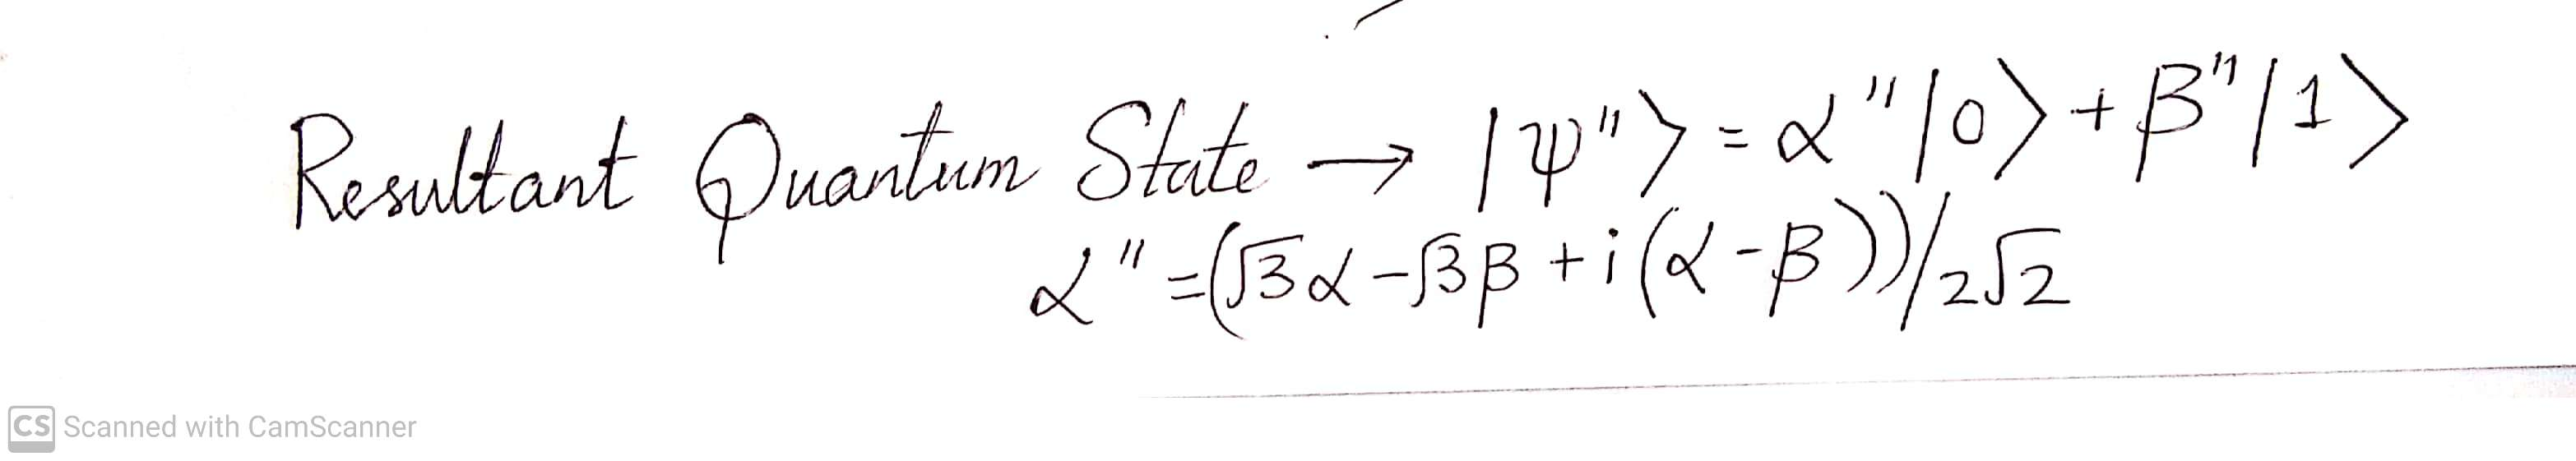 Resultant Quantum State → |ψ''> = α''|0> + β''|1>
α'' = (√3α - √3β + i(α - β))/2√2
CS Scanned with CamScanner